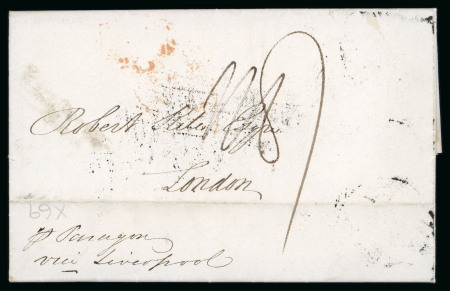 Robert Esqre
London
69X
p Paragon
via Liverpool